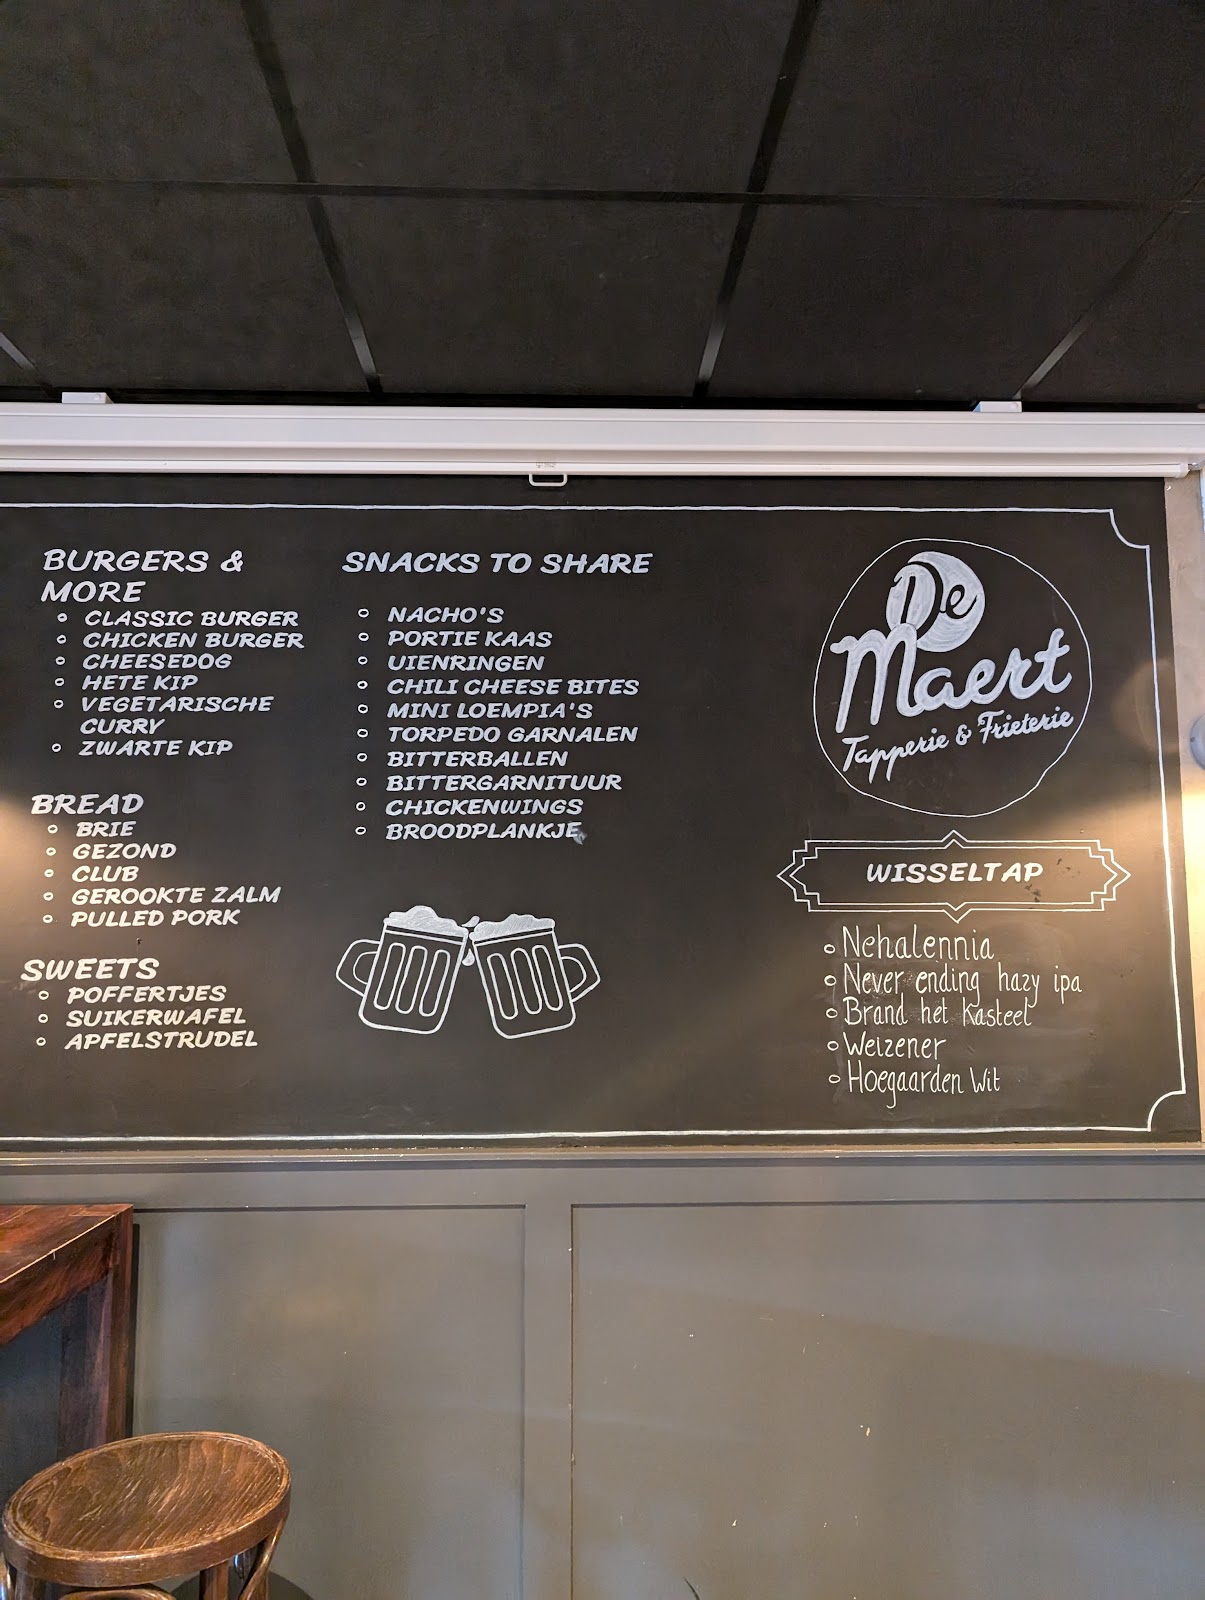 BURGERS &
MORE
CLASSIC BURGER
CHICKEN BURGER
CHEESEDOG
HETE KIP
VEGETARISCHE
CURRY
ZWARTE KIP
BREAD
BRIE
GEZOND
CLUB
GEROOKTE ZALM
PULLED PORK
SWEETS
POFFERTJES
SUIKERWAFEL
APFELSTRUDEL
SNACKS TO SHARE
NACHO'S
PORTIE KAAS
UIENRINGEN
CHILI CHEESE BITES
MINI LOEMPIA'S
TORPEDO GARNALEN
BITTERBALLEN
BITTERGARNITUUR
CHICKENWINGS
BROODPLANKJE
De
Maert
Tapperie & Frieterie
WISSELTAP
Nehalennia
Never ending hazy ipa
Brand het Kasteel
Weizener
Hoegaarden Wit